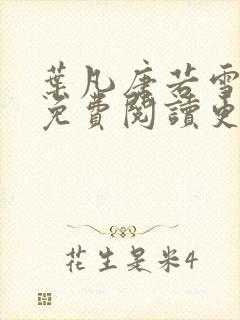 葉凡唐若雪
免費閱讀更
花生是米4